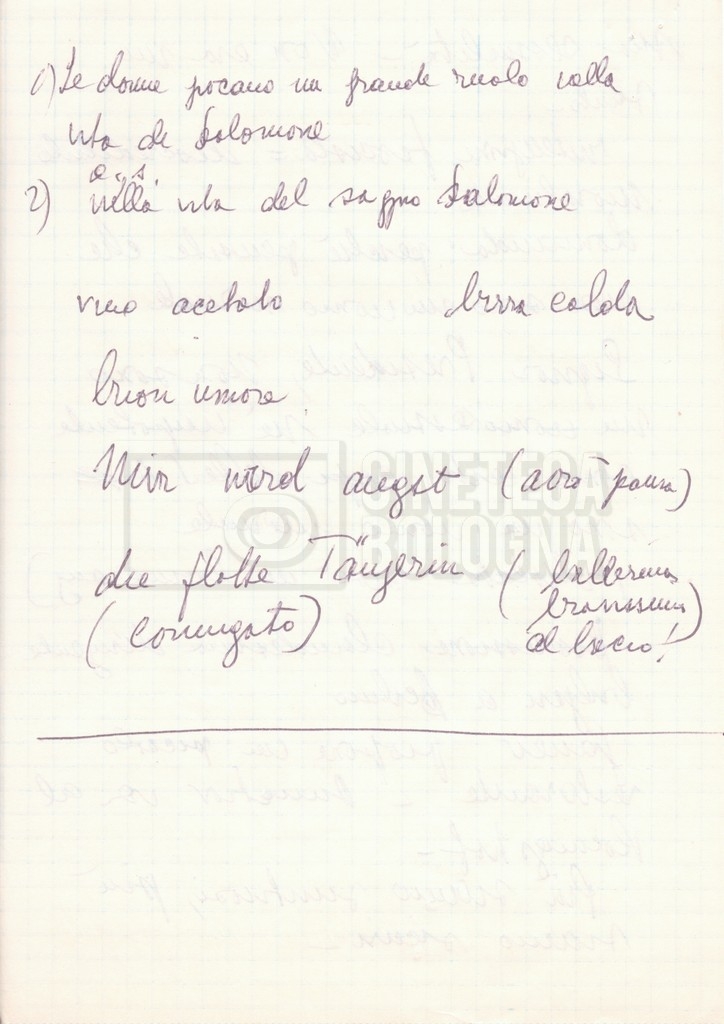 1) Le donne giocano un grande ruolo nella
vita di Salomone
e.s.
2) nella vita del saggio Salomone
vino acetato birra calda
buon umore
Mir wird angst (avrò paura)
CINETECA
BOLOGNA
die flotte Tänzerin (ballerina
bravissima
(coniugato) al bacio!